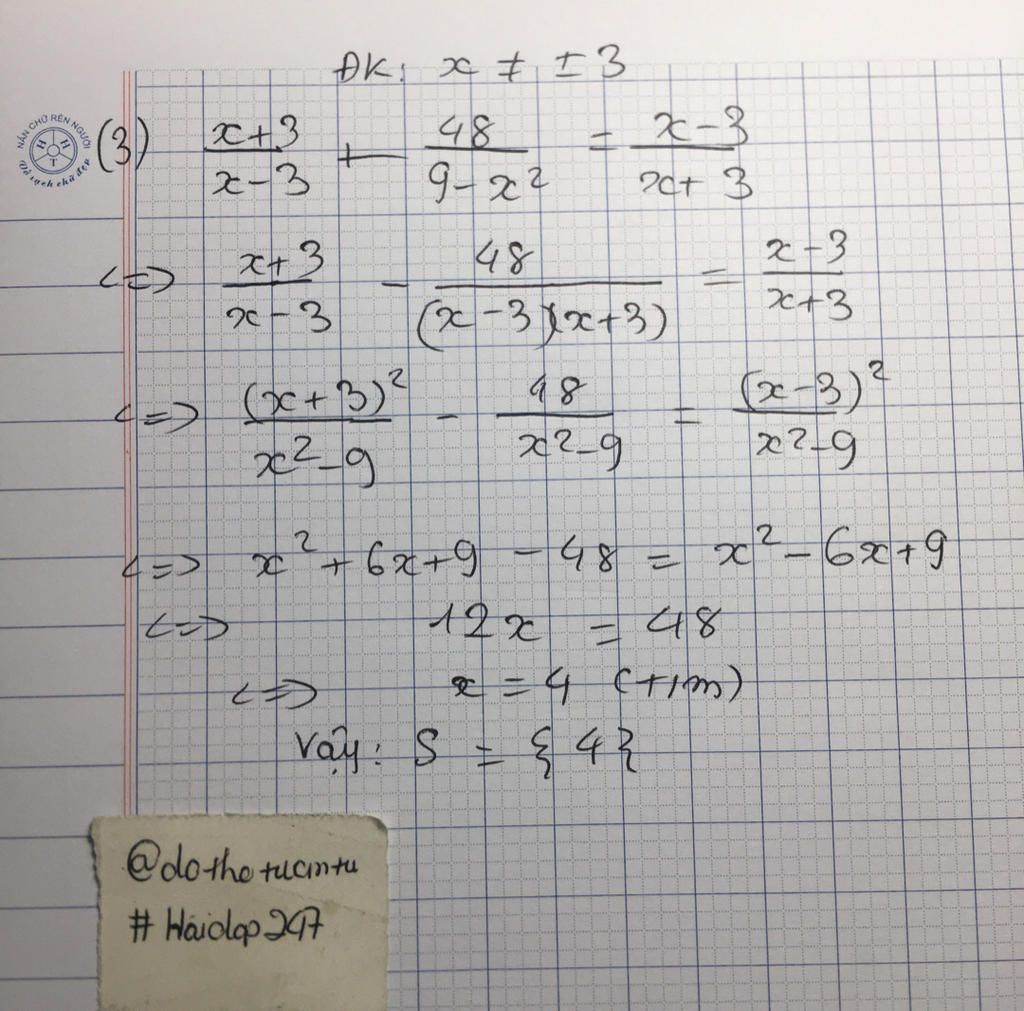 ĐK: x ≠ ±3
NẮN CHỮ RÈN NGƯỜI
H H T
Vở sạch chữ đẹp
(3) \frac{x+3}{x-3} + \frac{48}{9-x^2} = \frac{x-3}{x+3}
<=> \frac{x+3}{x-3} - \frac{48}{(x-3)(x+3)} = \frac{x-3}{x+3}
<=> \frac{(x+3)^2}{x^2-9} - \frac{48}{x^2-9} = \frac{(x-3)^2}{x^2-9}
<=> x^2 + 6x + 9 - 48 = x^2 - 6x + 9
<=> 12x = 48
<=> x = 4 (t/m)
Vậy: S = {4}
@dothetuantu
#Hoidap247